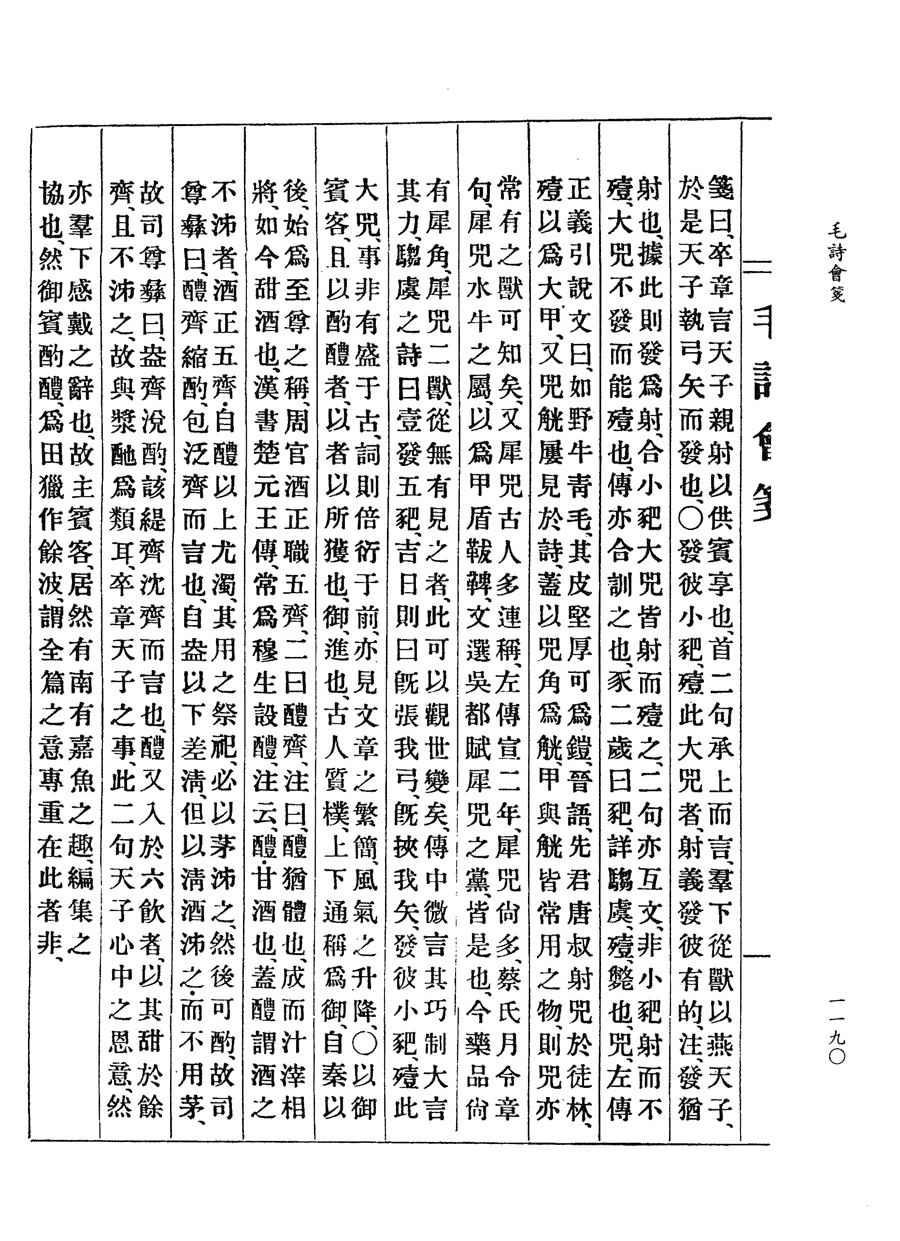 毛詩會箋
一一九〇
毛詩會箋
箋曰、卒章言天子親射以供賓享也、首二句承上而言、羣下從獸以燕天子、
於是天子執弓矢而發也、〇發彼小豝、殪此大兕者、射義發彼有的、注、發猶
射也、據此則發爲射、合小豝大兕皆射而殪之、二句亦互文、非小豝射而不
殪、大兕不發而能殪也、傳亦合訓之也、豕二歲曰豝、詳騶虞、殪、斃也、兕、左傳
正義引說文曰、如野牛青毛、其皮堅厚可爲鎧、晉語、先君唐叔射兕於徒林、
殪以爲大甲、又兕觥屢見於詩、蓋以兕角爲觥、甲與觥皆常用之物、則兕亦
常有之獸可知矣、又犀兕古人多連稱、左傳宣二年、犀兕尙多、蔡氏月令章
句、犀兕水牛之屬、以爲甲盾鞁鞞、文選吳都賦犀兕之黨、皆是也、今藥品尙
有犀角、犀兕二獸、從無有見之者、此可以觀世變矣、傳中微言其巧制大言
其力、騶虞之詩曰壹發五豝、吉日則曰旣張我弓、旣挾我矢、發彼小豝、殪此
大兕、事非有盛于古、詞則倍衍于前、亦見文章之繁簡、風氣之升降、〇以御
賓客、且以酌醴者、以者以所獲也、御、進也、古人質樸、上下通稱爲御、自秦以
後、始爲至尊之稱、周官酒正職五齊、二曰醴齊、注曰、醴猶體也、成而汁滓相
將、如今甜酒也、漢書楚元王傳、常爲穆生設醴、注云、醴・甘酒也、蓋醴謂酒之
不沸者、酒正五齊・自醴以上尤濁、其用之祭祀、必以茅沸之、然後可酌、故司
尊彝曰、醴齊縮酌、包泛齊而言也、自盎以下差淸、但以淸酒沸之・而不用茅、
故司尊彝曰、盎齊涗酌、該緹齊沈齊而言也、醴又入於六飮者、以其甜於餘
齊、且不沸之、故與漿酏爲類耳、卒章天子之事、此二句天子心中之恩意、然
亦羣下感戴之辭也、故主賓客、居然有南有嘉魚之趣、編集之
協也、然御賓酌醴、爲田獵作餘波、謂全篇之意專重在此者非、